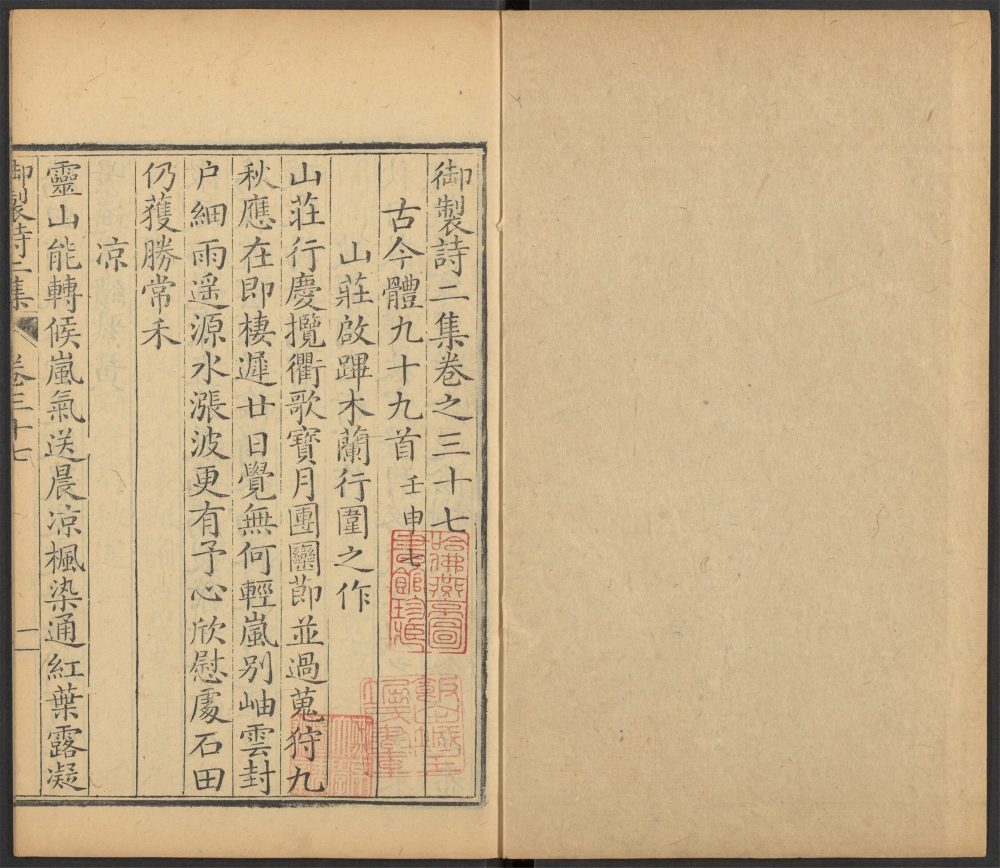 御製詩二集卷之三十七
古今體九十九首 壬申七
山莊啟蹕木蘭行圍之作
山莊行慶攬衢歌寶月團圞節並過蒐狩九
秋應在即棲遲廿日覺無何輕嵐别岫雲封
户細雨遥源水漲波更有予心欣慰處石田
仍獲勝常禾
凉
靈山能轉候嵐氣送晨凉楓染通紅葉露凝
御製詩二集 卷三十七 一
哈佛燕京圖
書館珍藏